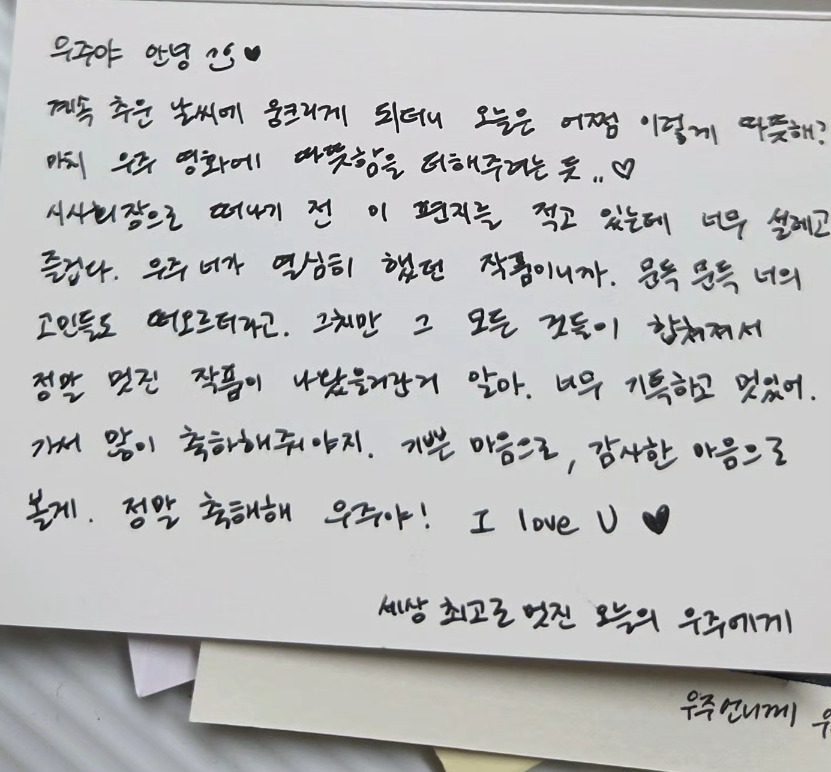 우주야 안녕 ♥
계속 추운 날씨에 웅크리게 되더니 오늘은 어쩜 이렇게 따뜻해?
마치 우주 영화에 따뜻함을 더해주려는 듯.. ♡
시사회장으로 떠나기 전 이 편지를 적고 있는데 너무 설레고
즐겁다. 우주 너가 열심히 했던 작품이니까. 문득 문득 너의
고민들도 떠오르더라고. 그치만 그 모든 것들이 합쳐져서
정말 멋진 작품이 나왔을거란거 알아. 너무 기특하고 멋있어.
가서 많이 축하해줘야지. 기쁜 마음으로, 감사한 마음으로
볼게. 정말 축해해 우주야! I love U ♥
세상 최고로 멋진 오늘의 우주에게
우주언니께 우